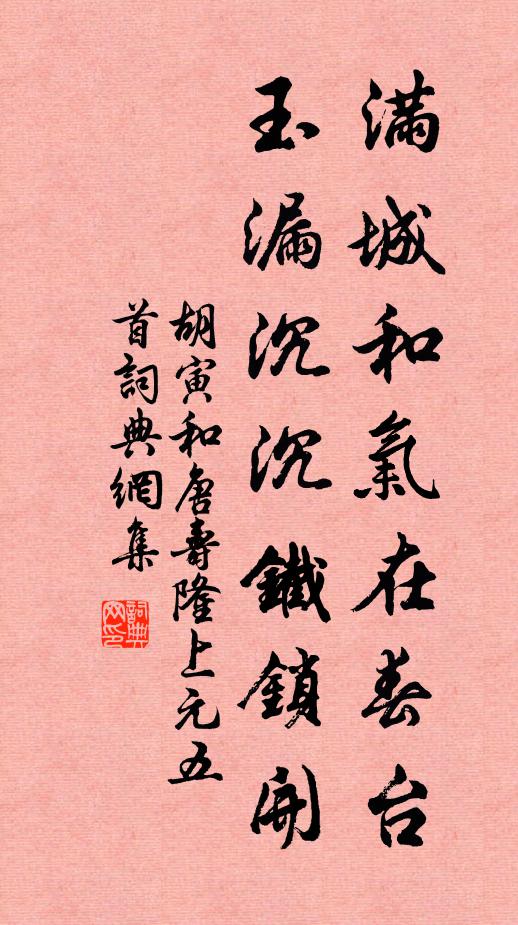 滿城和氣在春台
玉漏沉沉鐵鎖開
胡寅和唐壽隆上元五
首詞典網集
詞典網印